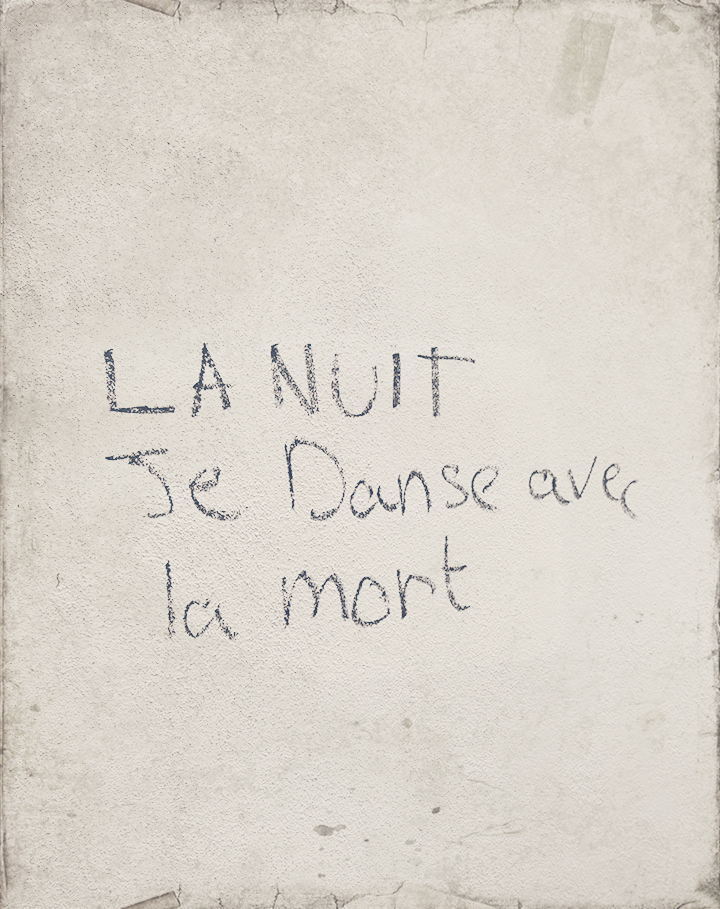 LA NUIT
Je Danse avec
la mort